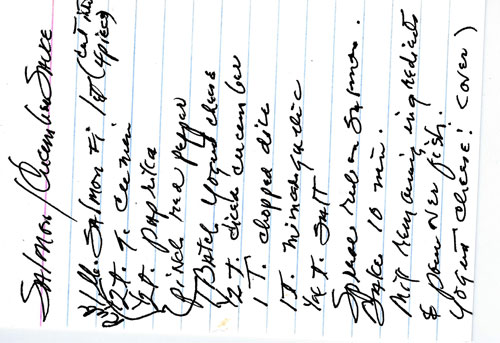 Salmon/Cucumber Sauce
1 lb. Salmon Fillet (cut into 4 pieces)
1/2 t. Cumin
1/2 t. paprika
pinch red pepper
1 Batch Yogurt cheese
1/2 T. diced cucumber
1 T. chopped dill
1 T. minced garlic
1/4 t. salt
Spread rub on salmon.
Bake 10 min.
Mix remaining ingredients
& pour over fish.
Yogurt cheese: (over)